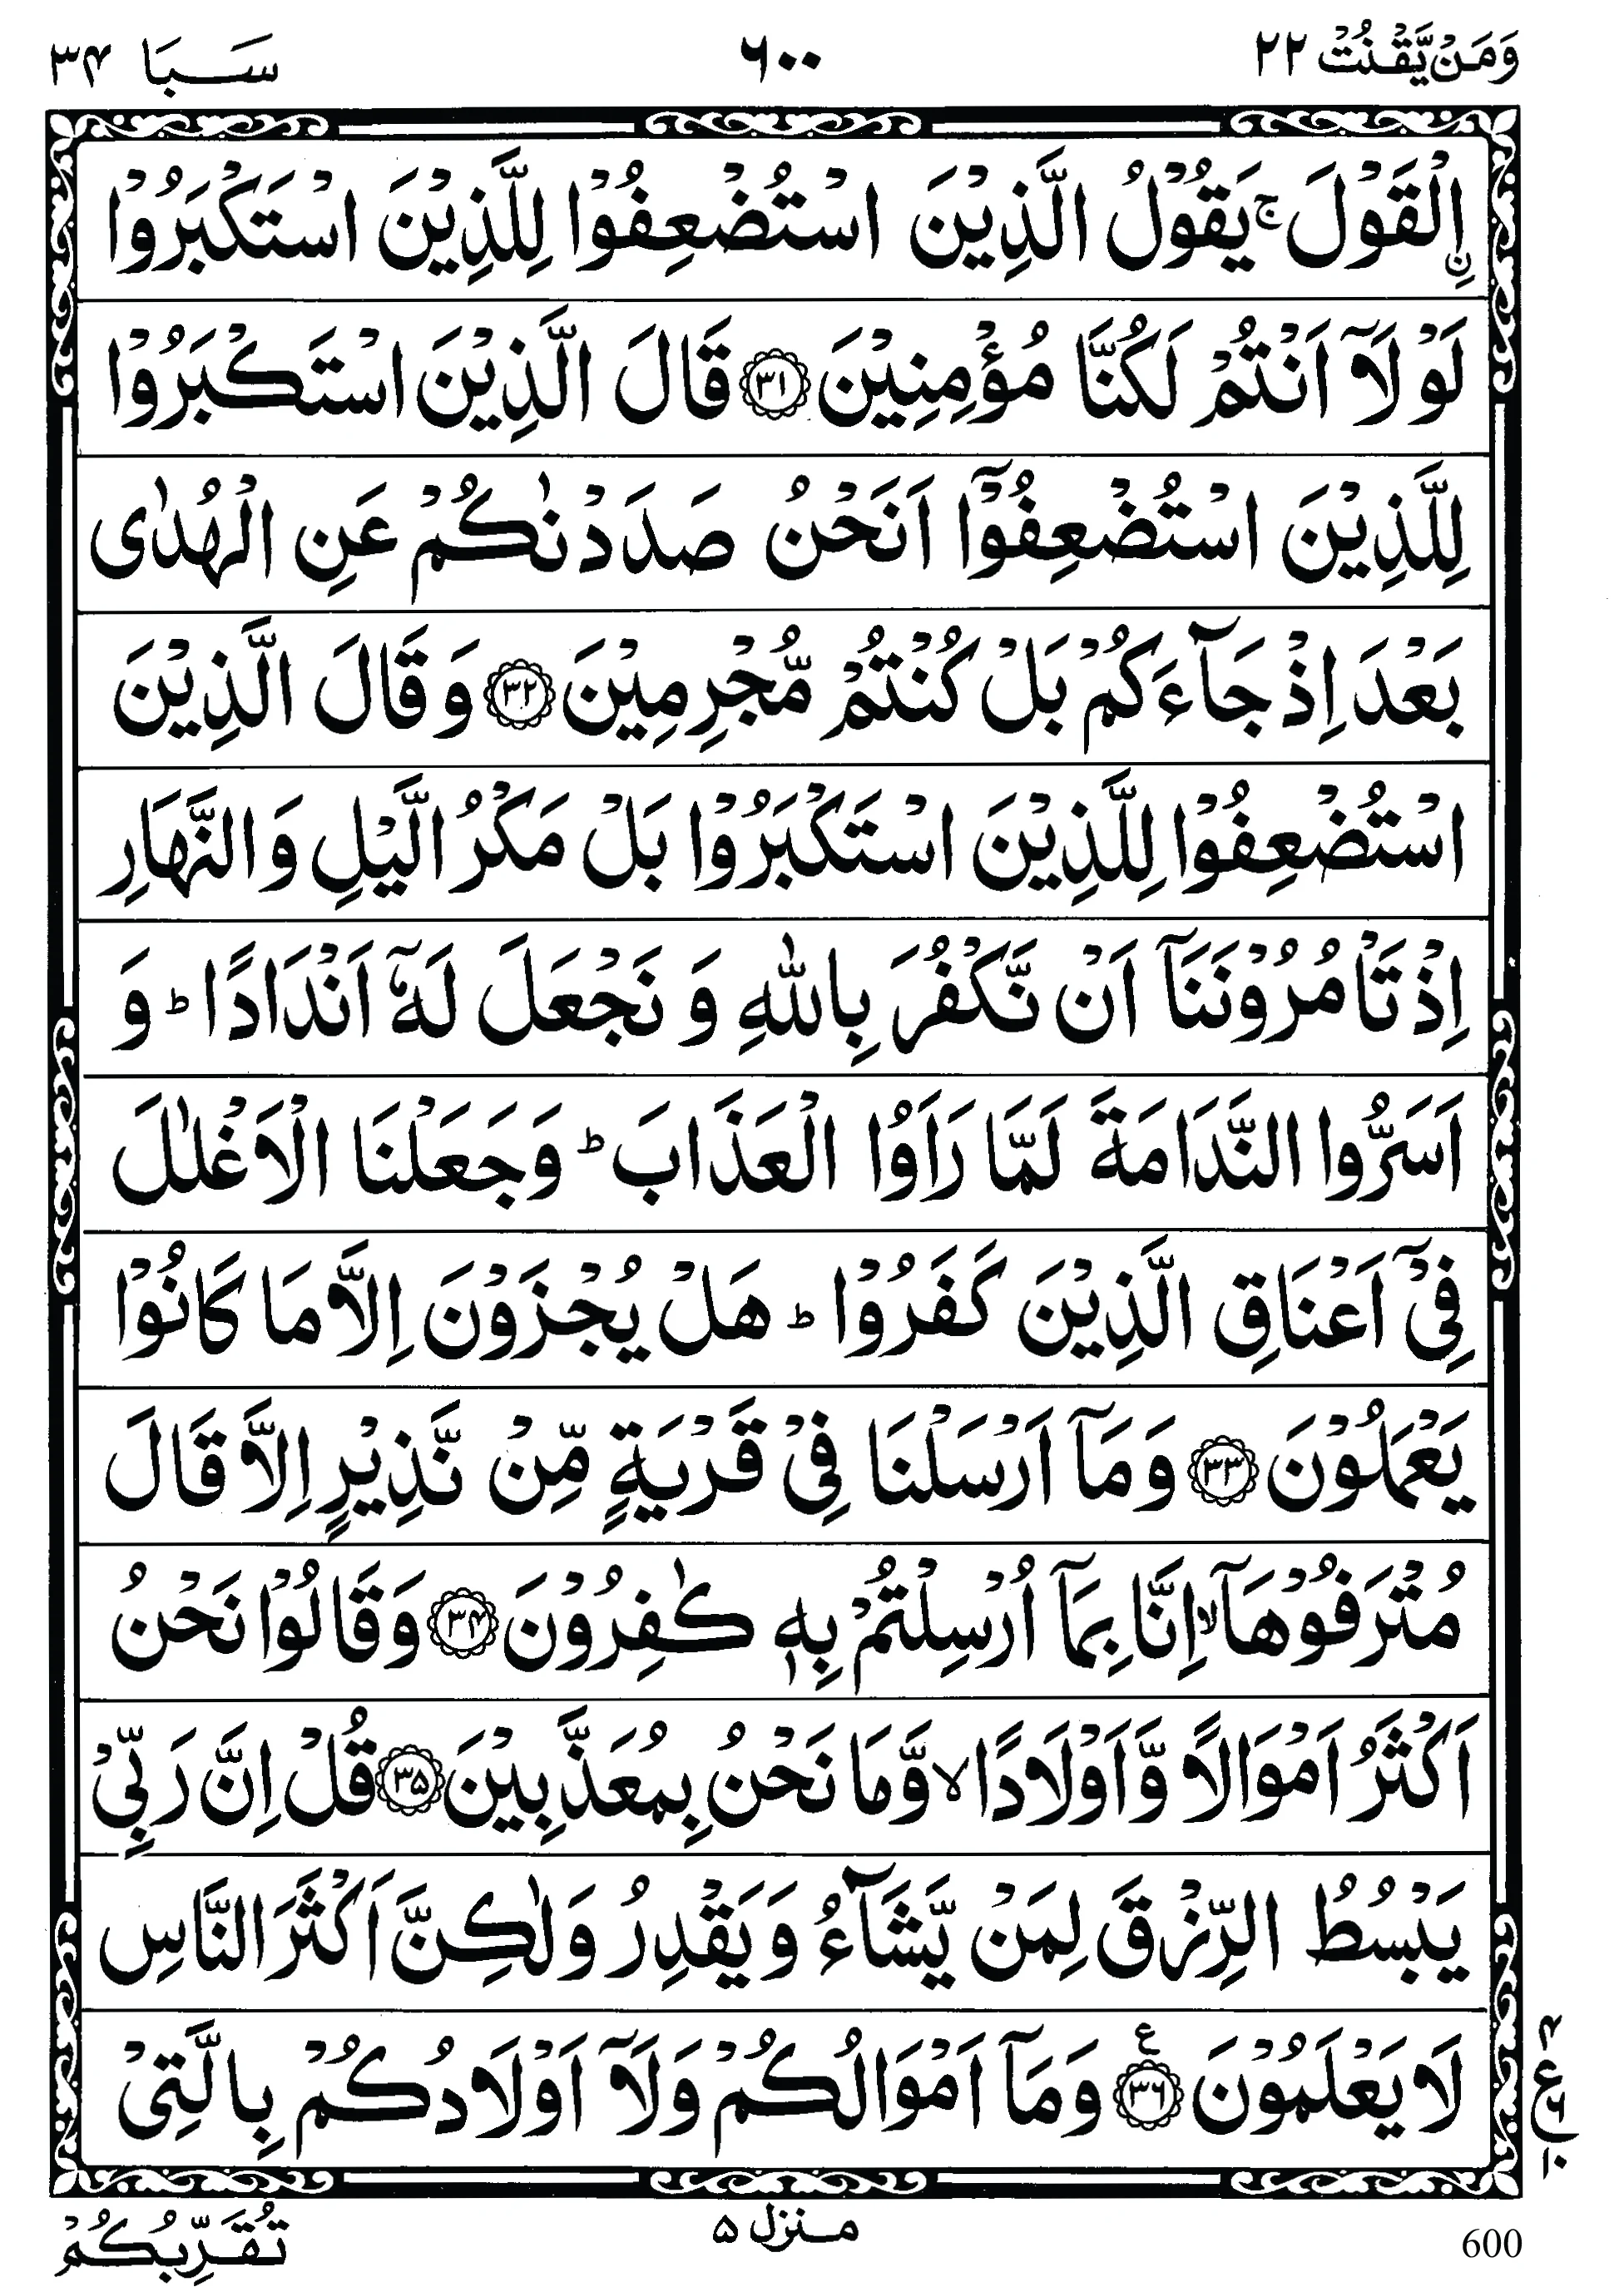 وَمَنْ يَّقْنُتْ ٢٢ ٦٠٠ سَــبَا ٣۴
اِ۟لْقَوْلَ ۚ يَقُوْلُ الَّذِيْنَ اسْتُضْعِفُوْا لِلَّذِيْنَ اسْتَكْبَرُوْا
لَوْ لَاۤ اَنْتُمْ لَكُنَّا مُؤْمِنِيْنَ ﴿۳۱﴾ قَالَ الَّذِيْنَ اسْتَكْبَرُوْا
لِلَّذِيْنَ اسْتُضْعِفُوْۤا اَنَحْنُ صَدَدْنٰكُمْ عَنِ الْهُدٰى
بَعْدَ اِذْ جَآءَكُمْ بَلْ كُنْتُمْ مُّجْرِمِيْنَ ﴿۳۲﴾ وَ قَالَ الَّذِيْنَ
اسْتُضْعِفُوْا لِلَّذِيْنَ اسْتَكْبَرُوْا بَلْ مَكْرُ الَّيْلِ وَ النَّهَارِ
اِذْ تَاْمُرُوْنَنَاۤ اَنْ نَّكْفُرَ بِاللّٰهِ وَ نَجْعَلَ لَهٗۤ اَنْدَادًا ؕ وَ
اَسَرُّوا النَّدَامَةَ لَمَّا رَاَوُا الْعَذَابَ ؕ وَجَعَلْنَا الْاَغْلٰلَ
فِيْۤ اَعْنَاقِ الَّذِيْنَ كَفَرُوْا ؕ هَلْ يُجْزَوْنَ اِلَّا مَا كَانُوْا
يَعْمَلُوْنَ ﴿۳۳﴾ وَ مَاۤ اَرْسَلْنَا فِيْ قَرْيَةٍ مِّنْ نَّذِيْرٍ اِلَّا قَالَ
مُتْرَفُوْهَاۤ ۙ اِنَّا بِمَاۤ اُرْسِلْتُمْ بِهٖ كٰفِرُوْنَ ﴿۳۴﴾ وَ قَالُوْا نَحْنُ
اَكْثَرُ اَمْوَالًا وَّ اَوْلَادًا ۙ وَّ مَا نَحْنُ بِمُعَذَّبِيْنَ ﴿۳۵﴾ قُلْ اِنَّ رَبِّيْ
يَبْسُطُ الرِّزْقَ لِمَنْ يَّشَآءُ وَ يَقْدِرُ وَ لٰكِنَّ اَكْثَرَ النَّاسِ
لَا يَعْلَمُوْنَ ﴿۳۶﴾ ع وَ مَاۤ اَمْوَالُكُمْ وَ لَاۤ اَوْلَادُكُمْ بِالَّتِيْ
۴
ع ٦
١٠
تُقَرِّبُكُمْ
منزل ۵
600